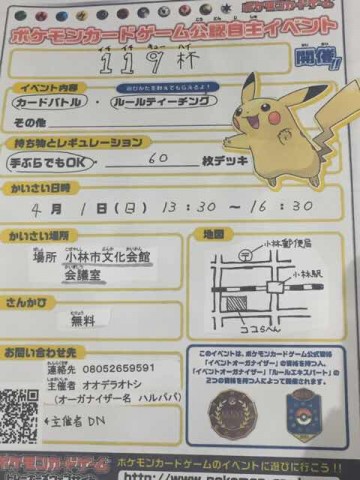 ポケモンカードゲーム
ポケモンカードゲーム公認自主イベント
イチ イチ キュー ハイ
119杯
開催!!
イベント内容
カードバトル ・ ルールティーチング
その他
持ち物とレギュレーション
手ぶらでもOK ・ 60 枚デッキ
かいさい日時
4月1日(日) 13:30 ~ 16:30
かいさい場所
場所 小林市文化会館
会議室
地図
小林郵便局
小林駅
ココらへん
さんかひ
無料
お問い合わせ先
連絡先 08052659591
主催者 オオデラオトシ
(オーガナイザー名 ハルパパ)
*主催者DN
このイベントは、ポケモンカードゲーム公式資格
「イベントオーガナイザー」の資格を持つ人、
「イベントオーガナイザー」「ルールエキスパート」の
2つの資格を持つ人によって開催されます。
ポケモンカードゲーム
ポケモンカードゲームのイベントに遊びに行こう!